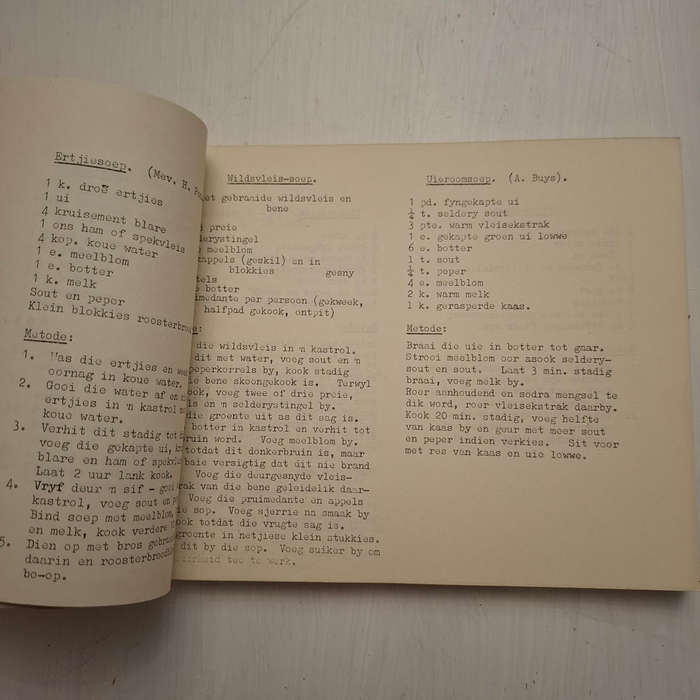 Ertjiesoep. (Mev. H.
1 k. droë ertjies
1 ui
4 kruisement blare
1 ons ham of spekvleis
4 kop. koue water
1 e. meelblom
1 e. botter
1 k. melk
Sout en peper
Klein blokkies
Metode:
1. Was die ertjies en
oornag in koue water.
2. Gooi die water af en
ertjies in 'n kastrol
koue water.
3. Verhit dit stadig tot
voeg die gekapte ui,
blare en ham of spekvleis
Laat 2 uur lank kook.
4. Vryf deur 'n sif - gooi
kastrol, voeg sout en
Bind soep met meelblom,
en melk, kook verdere
5. Dien op met bros
daarin en
bo-op.
Wildsvleis-soep.
et gebraide wildsvleis en
bene
preie
meelblom
appels (geskil) en in
blokkies gesny
botter
per persoon (gekweek,
halfpad gekook, ontpit)
die wildsvleis in 'n kastrol.
dit met water, voeg sout en 'n
peperkorrels by, kook stadig
bene skoongekook is. Terwyl
voeg twee of drie preie,
en 'n selderystingel by.
die groente uit as dit sag is.
botter in kastrol en verhit tot
bruin word. Voeg meelblom by.
totdat dit donkerbruin is, maar
baie versigtig dat dit nie brand
Voeg die deurgesnyde vleis-
van die bene geleidelik daar-
Voeg die pruimedante en appels
sop. Voeg sjerrie na smaak by
totdat die vrugte sag is.
groente in netjiese klein stukkies.
dit by die sop. Voeg suiker by om
te werk.
Uieroomsoep. (A. Buys).
1 pd. fyngekapte ui
¼ t. seldery sout
3 pte. warm vleisekstrak
1 e. gekapte groen ui lowwe
6 e. botter
1 t. sout
¼ t. peper
4 e. meelblom
2 k. warm melk
1 k. gerasperde kaas.
Metode:
Braai die uie in botter tot gaar.
Strooi meelblom oor asook seldery-
sout en sout. Laat 3 min. stadig
braai, voeg melk by.
Roer aanhoudend en sodra mengsel te
dik word, roer vleisekstrak daarby.
Kook 20 min. stadig, voeg helfte
van kaas by en geur met meer sout
en peper indien verkies. Sit voor
met res van kaas en uie lowwe.